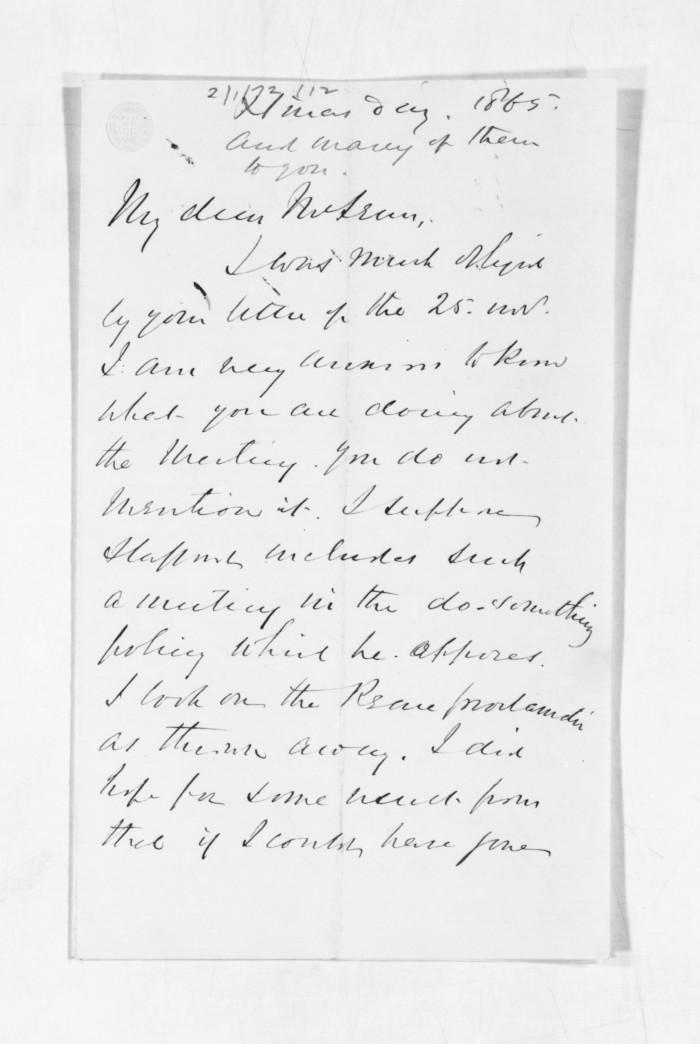 Xmas day. 1865.
and many of them
to you.
My dear McLean,
I was much obliged
by your letter of the 25. Nov.
I am very anxious to know
what you are doing about
the Meeting. You do not
mention it. I suppose
Stafford includes such
a meeting in the do-something
policy which he opposes.
I look on the Peace proclamatin
as thrown away. I did
hope for some result from
that if I could have gone